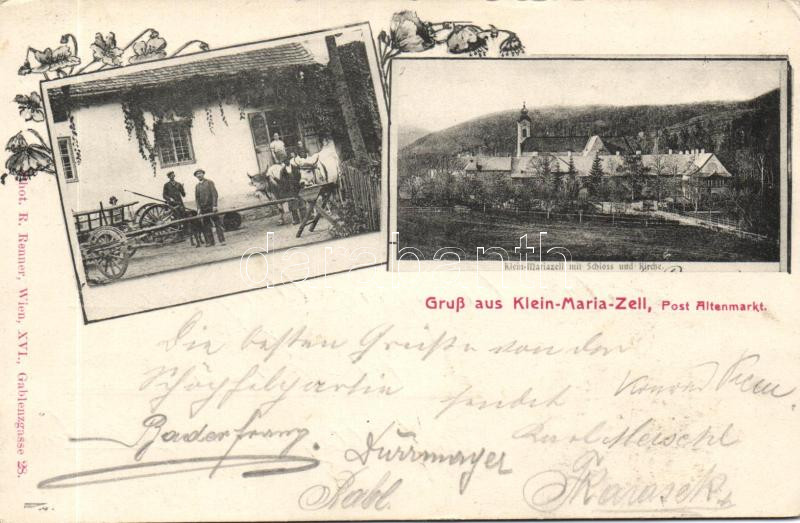 Phot. R. Renner, Wien, XVI., Gablenzgasse 28.
Klein-Mariazell mit Schloss und Kirche.
darabanth
Gruß aus Klein-Maria-Zell, Post Altenmarkt.
Die besten Grüße von der
Schöpfelpartie sendet Konrad
Bader Franz. Karl Meischl
Durrmayer
Rabl. Karasek